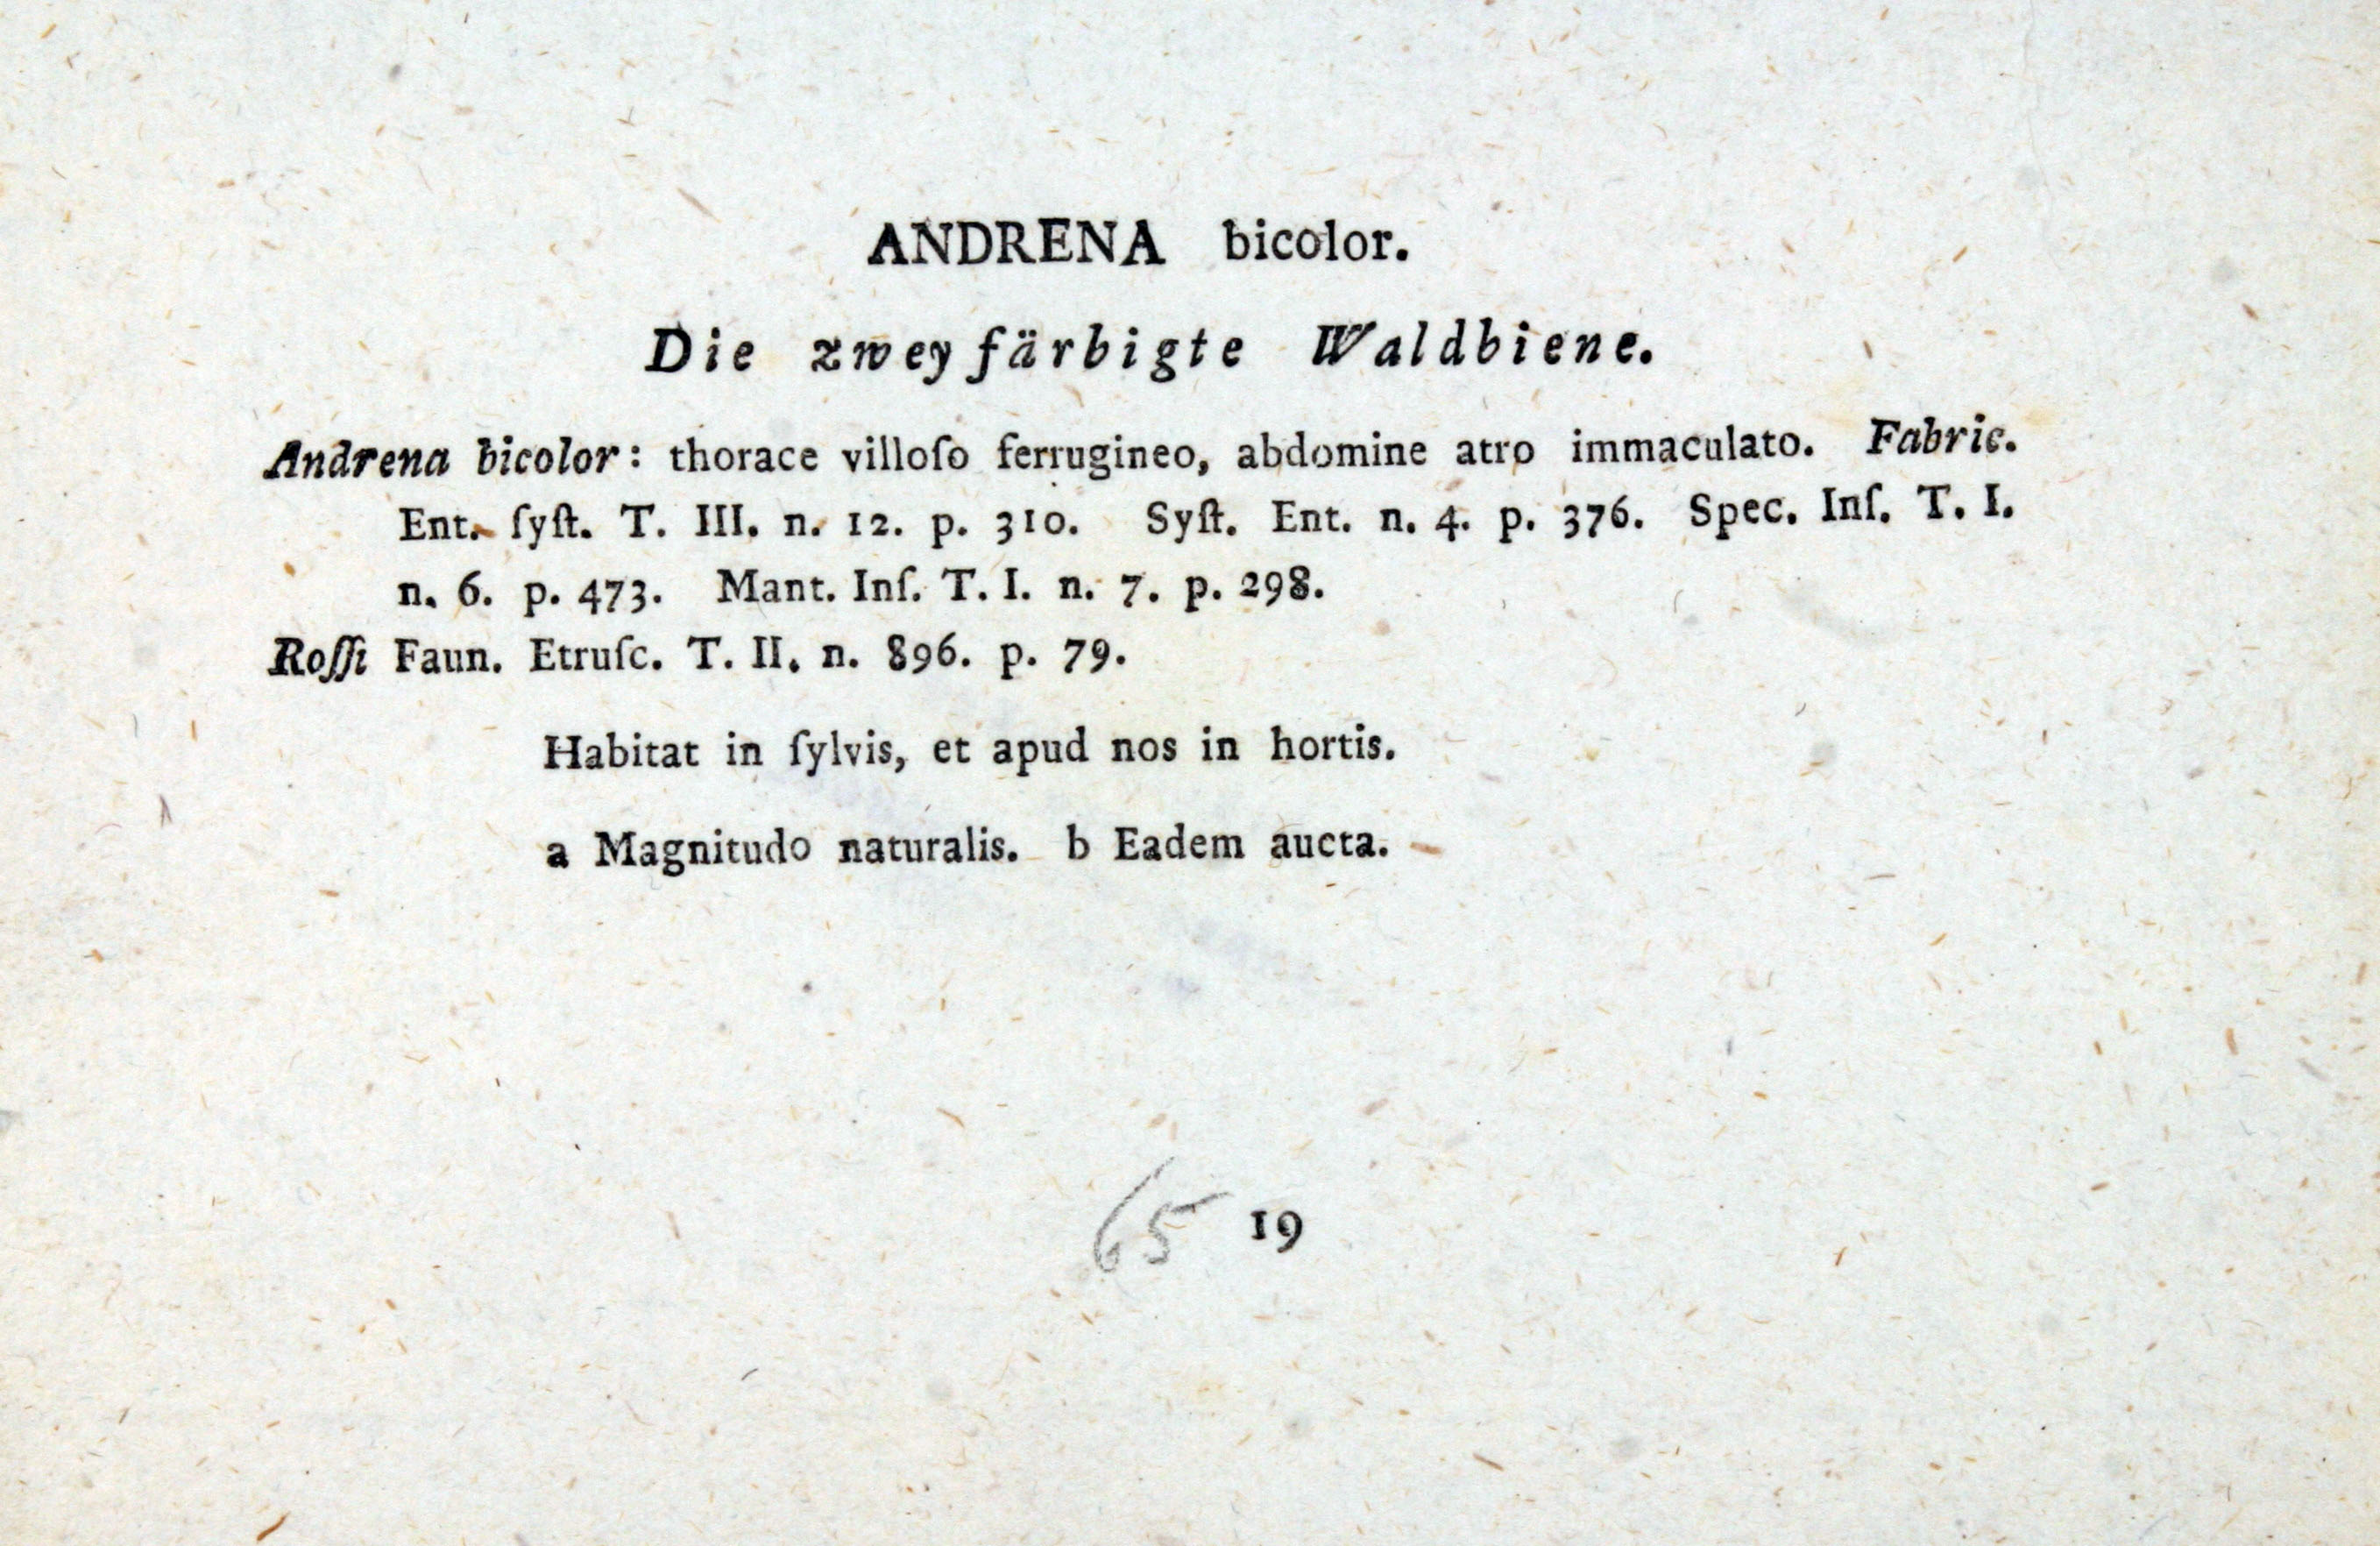 ANDRENA bicolor.
Die zweyfärbigte Waldbiene.
Andrena bicolor: thorace villoſo ferrugineo, abdomine atro immaculato. Fabric.
Ent. ſyſt. T. III. n. 12. p. 310. Syſt. Ent. n. 4. p. 376. Spec. Inſ. T. I.
n. 6. p. 473. Mant. Inſ. T. I. n. 7. p. 298.
Roſſi Faun. Etruſc. T. II. n. 896. p. 79.
Habitat in ſylvis, et apud nos in hortis.
a Magnitudo naturalis. b Eadem aucta.
65 19